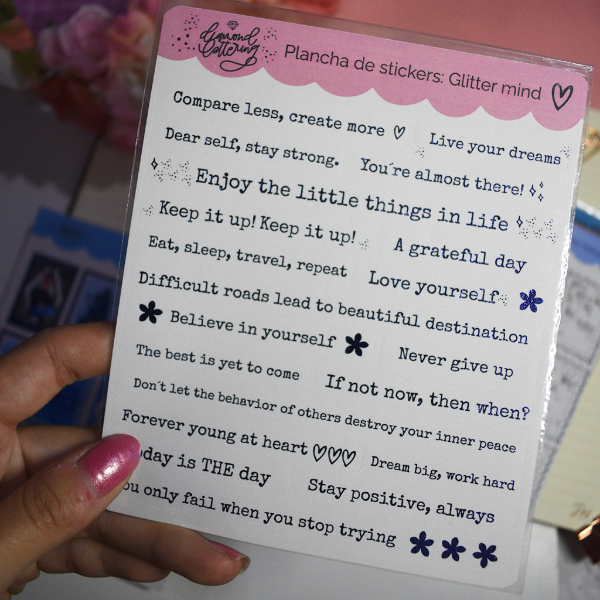 diamond
lettering
Plancha de stickers: Glitter mind
Compare less, create more
Live your dreams
Dear self, stay strong.
You're almost there!
Enjoy the little things in life
Keep it up! Keep it up!
A grateful day
Eat, sleep, travel, repeat
Love yourself
Difficult roads lead to beautiful destination
Believe in yourself
Never give up
The best is yet to come
If not now, then when?
Don't let the behavior of others destroy your inner peace
Forever young at heart
Dream big, work hard
day is THE day
Stay positive, always
only fail when you stop trying